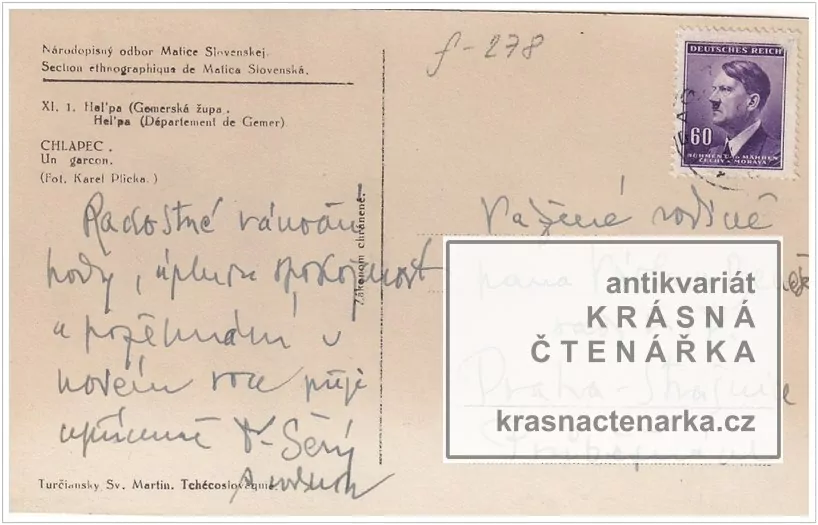 Národopisný odbor Matice Slovenskej.
Section ethnographique de Matica Slovenská.
XI. 1. Heľpa (Gemerská župa.
Heľpa (Département de Gemer)
CHLAPEC.
Un garcon.
(Fot. Karel Plicka.)
Radostné vánoční
hody, úplnou spokojenost
a požehnání v
novém roce přeje
upřímně Dr Šerý
s rodinou
Turčiansky Sv. Martin. Tchécoslovaquie.
Zákonom chránené.
f-278
DEUTSCHES REICH
60
BÖHMEN U. MÄHREN
ČECHY A MORAVA
Vážené rodině
pana
Praha-Strašnice
antikvariát
KRÁSNÁ
ČTENÁŘKA
krasnactenarka.cz